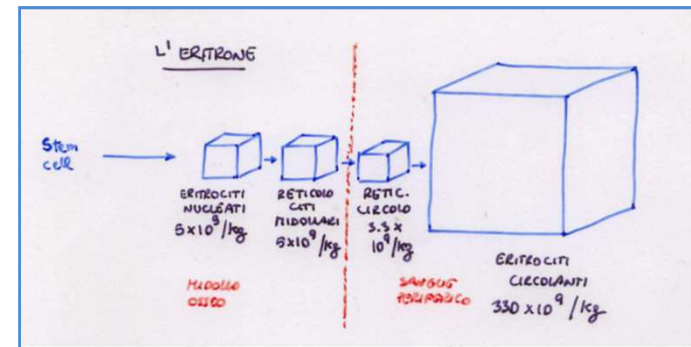 L' ERITRONE
Stem
cell
ERITROCITI
NUCLEATI
5x10⁹/kg
RETICOLO
CITI
MIDOLLARI
5x10⁹/kg
RETIC.
CIRCOLO
3.3 x
10⁹/kg
ERITROCITI
CIRCOLANTI
330 x 10⁹/kg
MIDOLLO
OSSEO
SANGUE
PERIFERICO